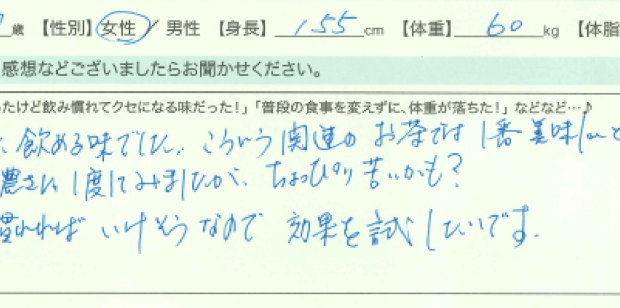 歳 【性別】 女性 / 男性 【身長】 155 cm 【体重】 60 kg 【体脂
感想などございましたらお聞かせください。
ったけど飲み慣れてクセになる味だった!」「普段の食事を変えずに、体重が落ちた!」などなど…♪
飲める味でした。こういう関連の お茶では 1番 美味しいと
濃さに 1度してみましたが、ちょっぴり苦いかも?
慣れれば いけそうなので 効果を試したいです。